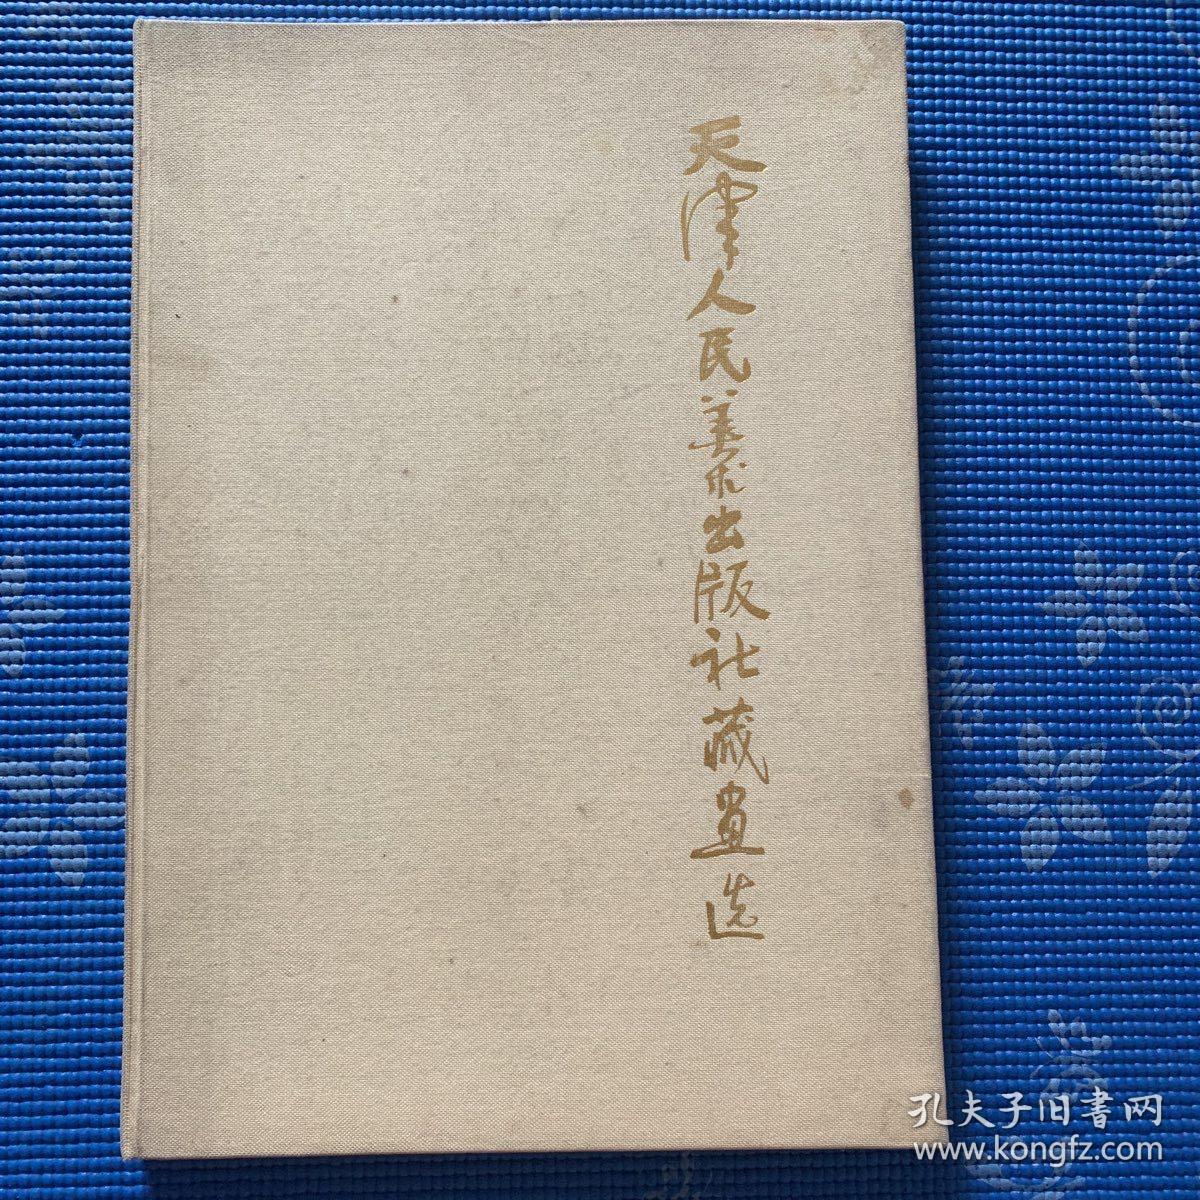 天津人民美术出版社藏畫选
孔夫子旧書网
www.kongfz.com